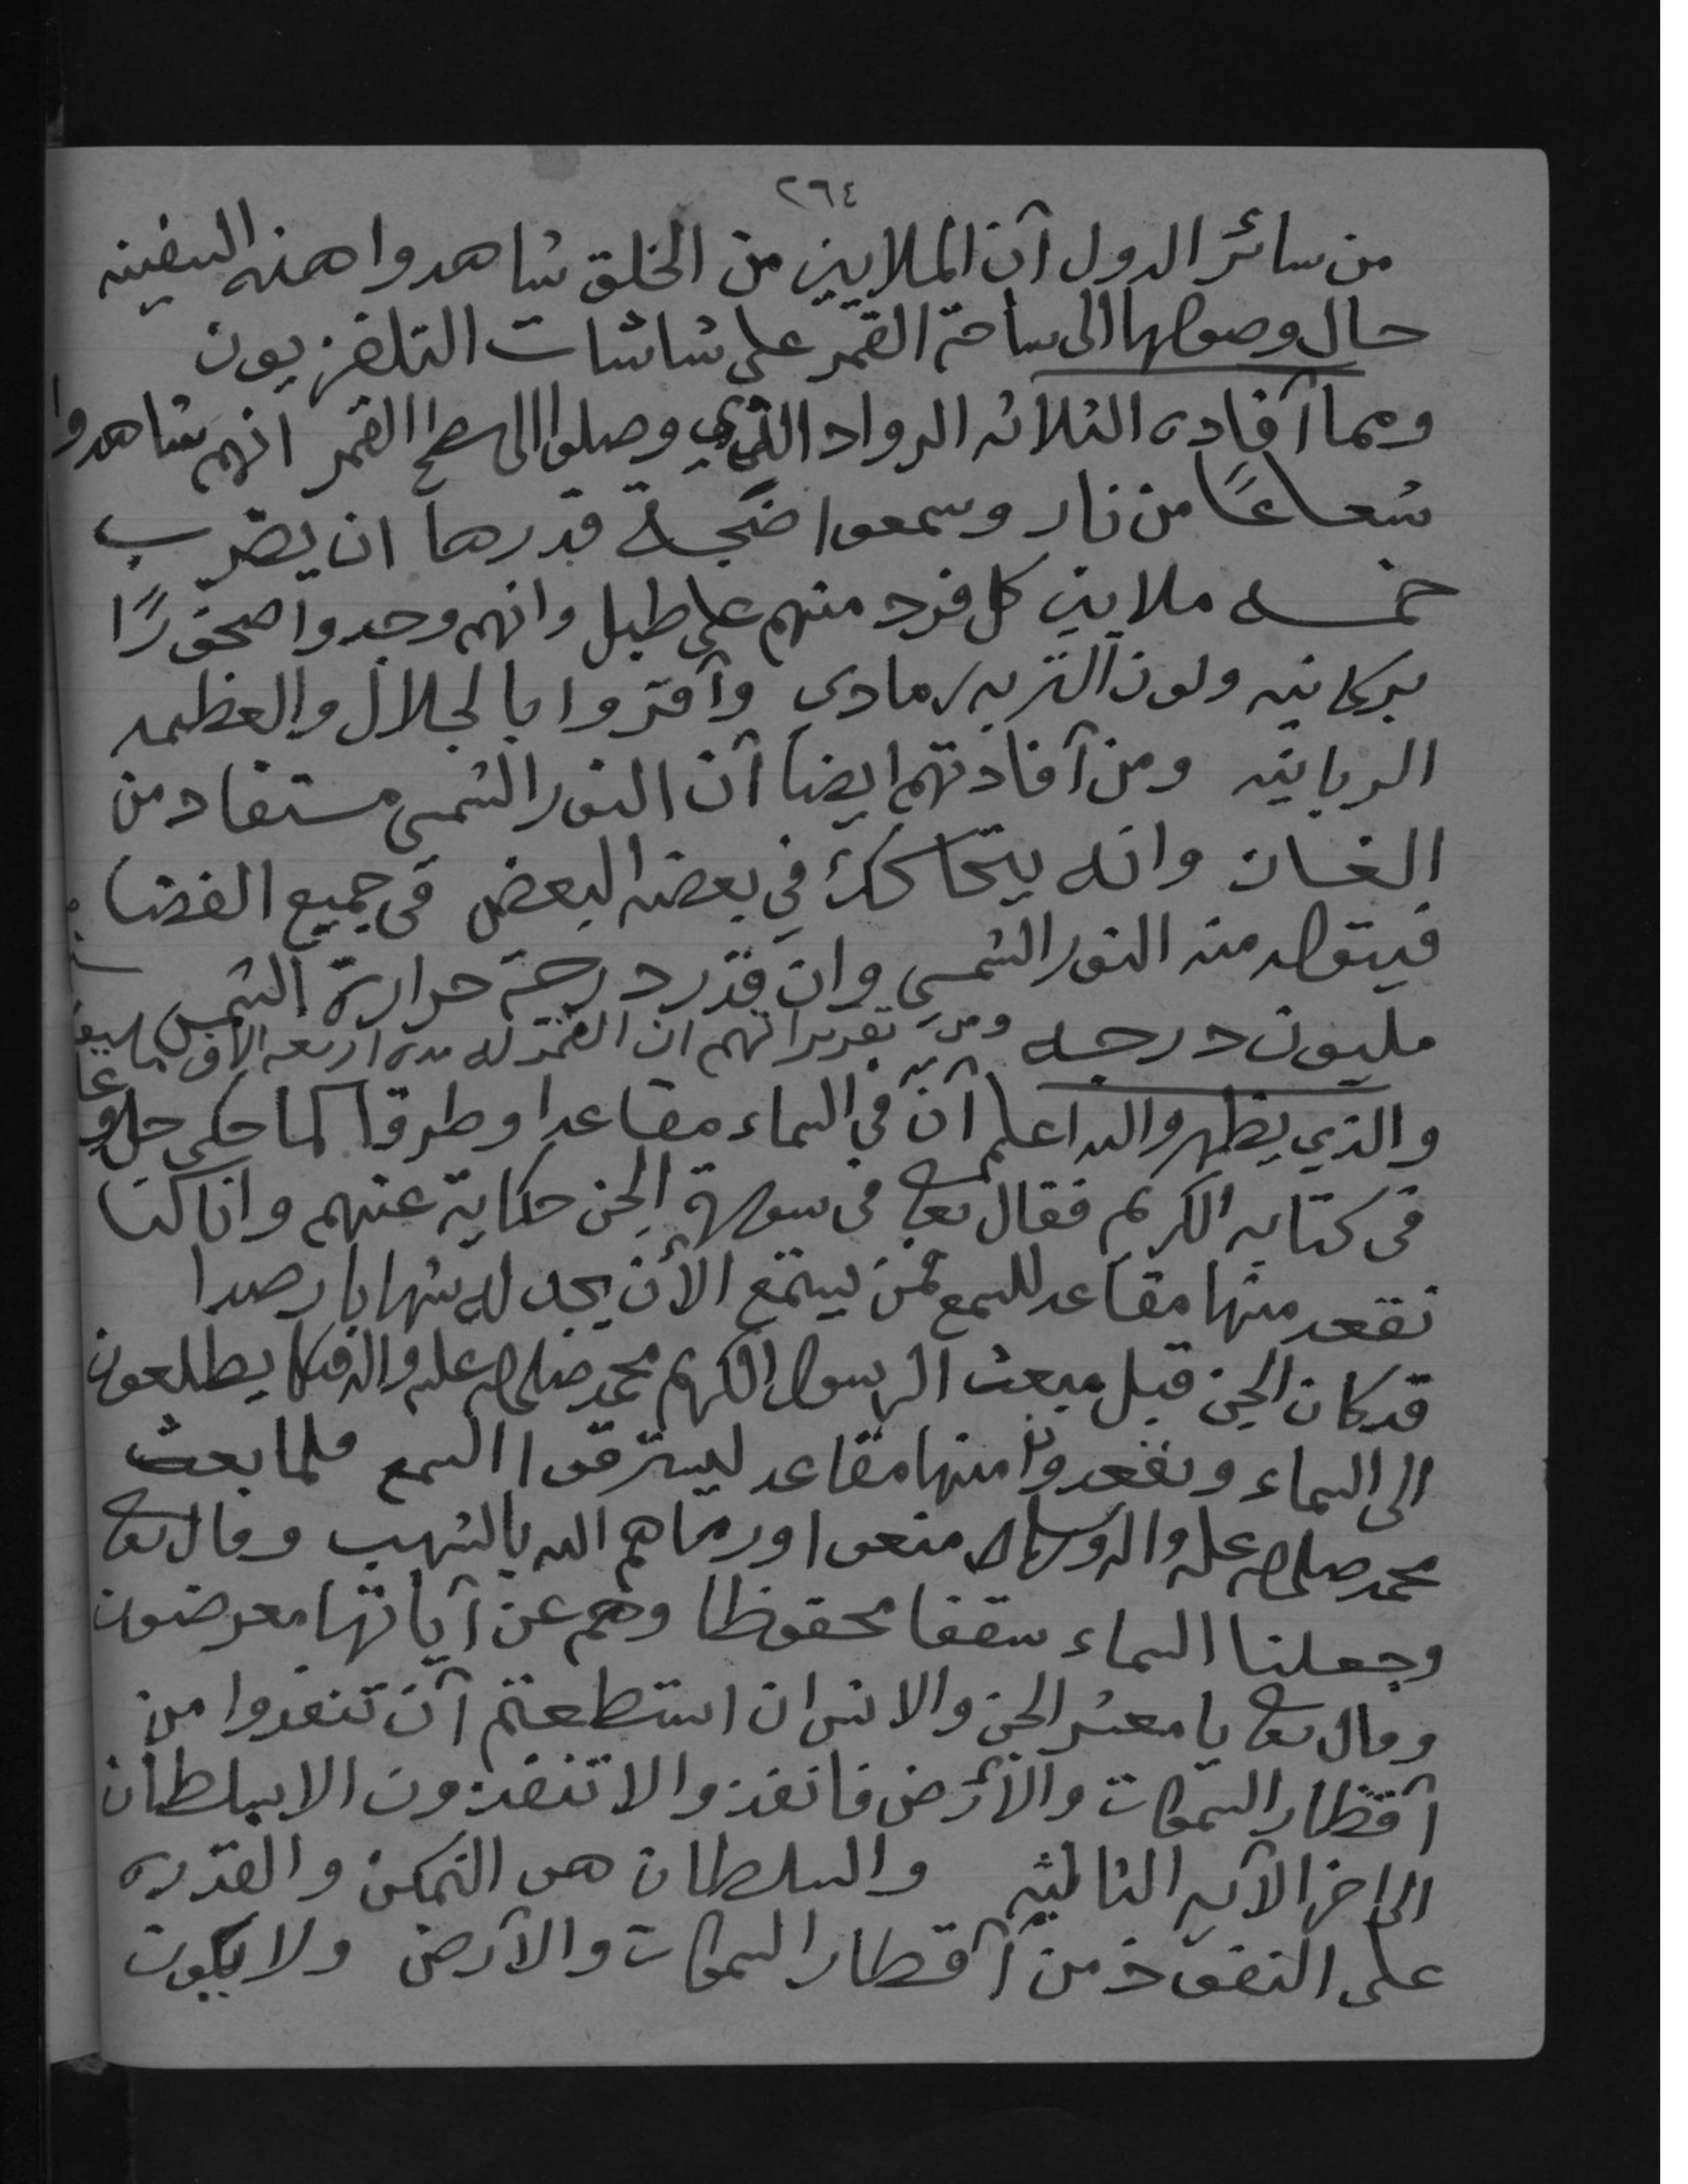 ٢٦٤
من سائر الدول آن الملايين من الخلق شاهدوا هذه السفينه
حال وصولها الى ساحة القمر على شاشات التلفزيون
ومما آفاده الثلاثه الرواد الذي وصلوا الى سطح القمر انهم شاهدوا
شعاعًا من نار وسمعوا ضجه قدرها ان يضرب
خمسه ملايين كل فرد منهم على طبل وانهم وجدوا صخورًا
بركانيه ولون التربه رمادي وآقروا بالجلال والعظمه
الربانيه ومن آفادتهم ايضا آن النور الشمسي مستفاد من
الغسان وانه يتحاكك في بعضه البعض في جميع الفضا
فيتولد منه النور الشمسي وان قدر درجة حرارة الشمس
مليون درجه ومن تقريراتهم ان القمر له مده اربعه الاف
والذي يظهر والله اعلم آنّ في السماء مقاعدا وطرقا كما حكى جل وعلا
في كتابه الكريم فقال تعالى في سورة الجن حكاية عنهم وانا كنا
نقعد منها مقاعد للسمع فمن يستمع الأن يجد له شهابا رصدا
قد كان الجن قبل مبعث الرسول الكريم محمد صلى الله عليه واله وسلم يطلعون
الى السماء ويقعدوا منها مقاعد ليسترقوا السمع فلما بعث
محمد صلى الله عليه واله وسلم منعوا ورماهم الله بالشهب وقال تعالى
وجعلنا السماء سقفا محفوظا وهم عن آياتها معرضون
وقال تعالى يا معشر الجن والانس ان استطعتم آن تنفدوا من
آقطار السموات والأرض فانفذوا لا تنفذون الا بسلطان
الى اخر الآيه الثالثيه والسلطان هو التمكن والقدره
على النفوذ من آقطار السموات والآرض ولا يكون